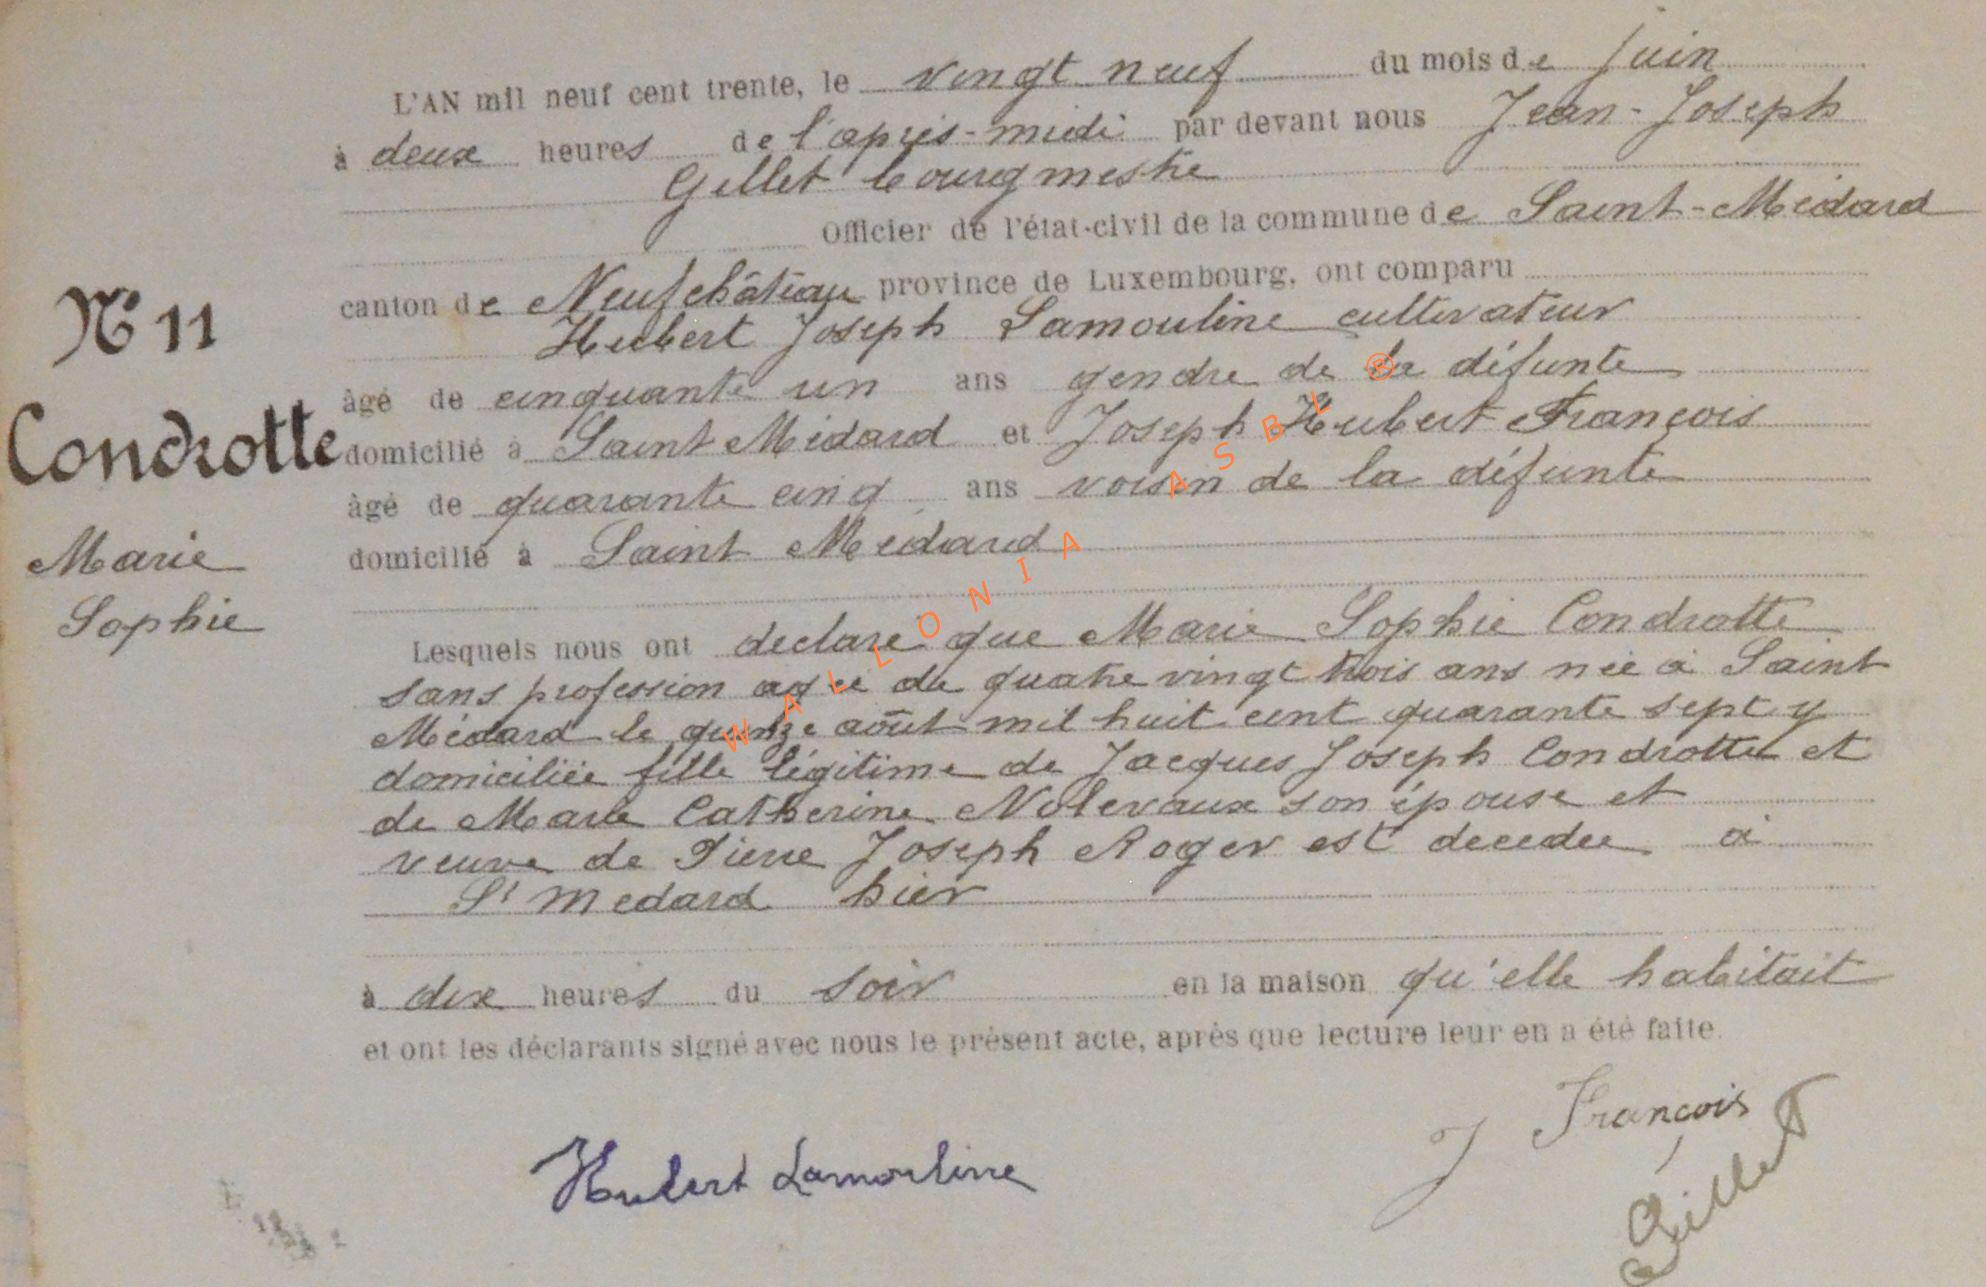 L'AN mil neuf cent trente, le vingt neuf du mois de juin
à deux heures de l'après-midi par devant nous Jean-Joseph
Gillet bourgmestre
Officier de l'état-civil de la commune de Saint-Médard
canton de Neufchâteau province de Luxembourg, ont comparu
Hubert Joseph Lamouline cultivateur
âgé de cinquante un ans gendre de la défunte
domicilié à Saint Médard et Joseph Hubert François
âgé de quarante cinq ans voisin de la défunte
domicilié à Saint Médard
N° 11
Condrotte
Marie
Sophie
Lesquels nous ont declaré que Marie Sophie Condrotte
sans profession agée de quatre vingt trois ans née à Saint
Médard le quinze août mil huit cent quarante sept y
domiciliée fille légitime de Jacques Joseph Condrotte et
de Marie Catherine Nolevaux son épouse et
veuve de Pierre Joseph Roger est decedee à
St Medard hier
à dix heures du soir en la maison qu'elle habitait
et ont les déclarants signé avec nous le présent acte, après que lecture leur en a été faite.
Hubert Lamouline
J François
Gillet
WALLONIA ASBL ®